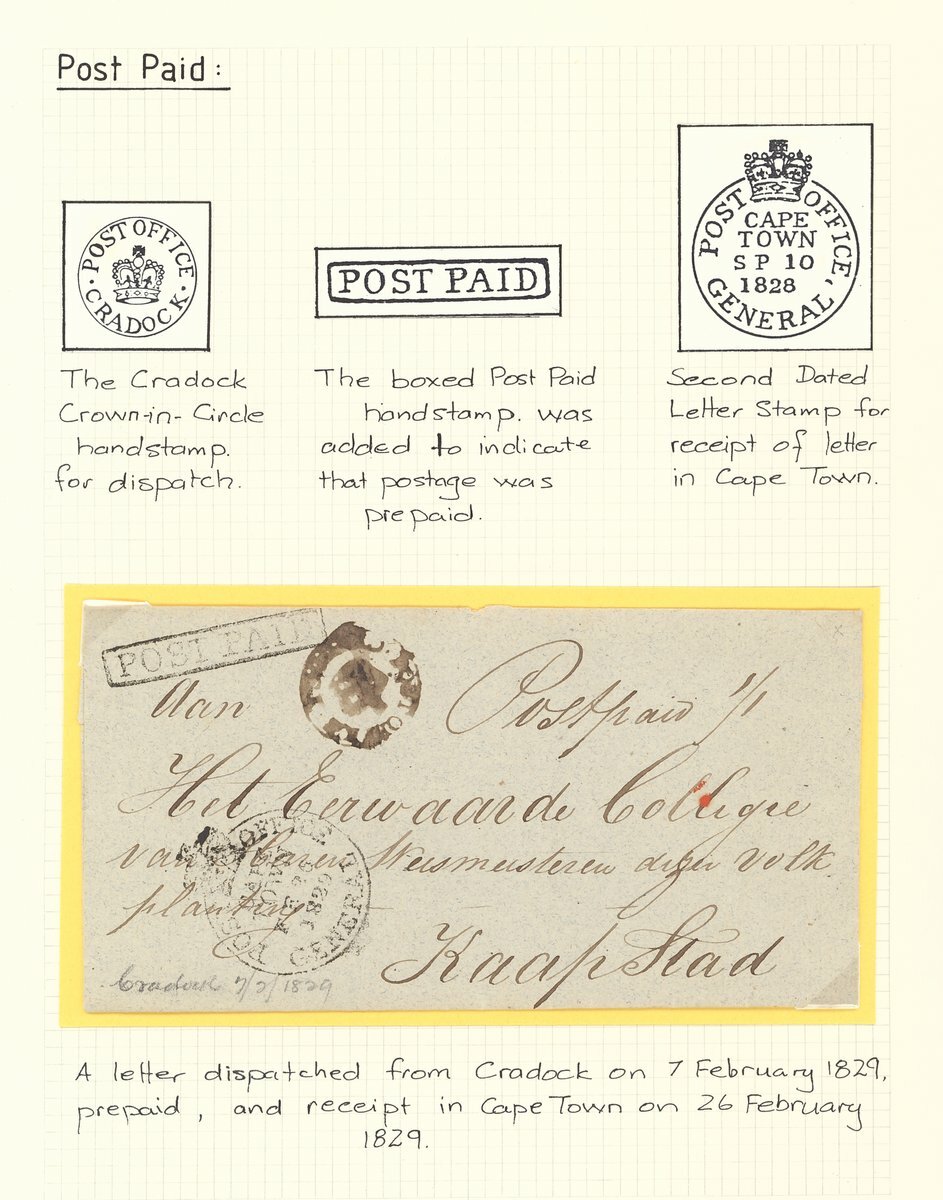 Post Paid:
POST OFFICE
CRADOCK
POST PAID
POST OFFICE,
CAPE
TOWN
SP 10
1828
GENERAL,
The Cradock
Crown-in-Circle
handstamp.
for dispatch.
The boxed Post Paid
handstamp. was
added to indicate
that postage was
prepaid.
Second Dated
Letter Stamp for
receipt of letter
in Cape Town.
POST PAID
Aan Postpaid 1/1
Het Eerwaarde Collegie
van Weesmeesteren dezer volk
planting
Kaap Stad
POST OFFICE
CAPE
TOWN
FE 26
1829
GENERAL
Cradock 7/2/1829
A letter dispatched from Cradock on 7 February 1829,
prepaid, and receipt in Cape Town on 26 February
1829.